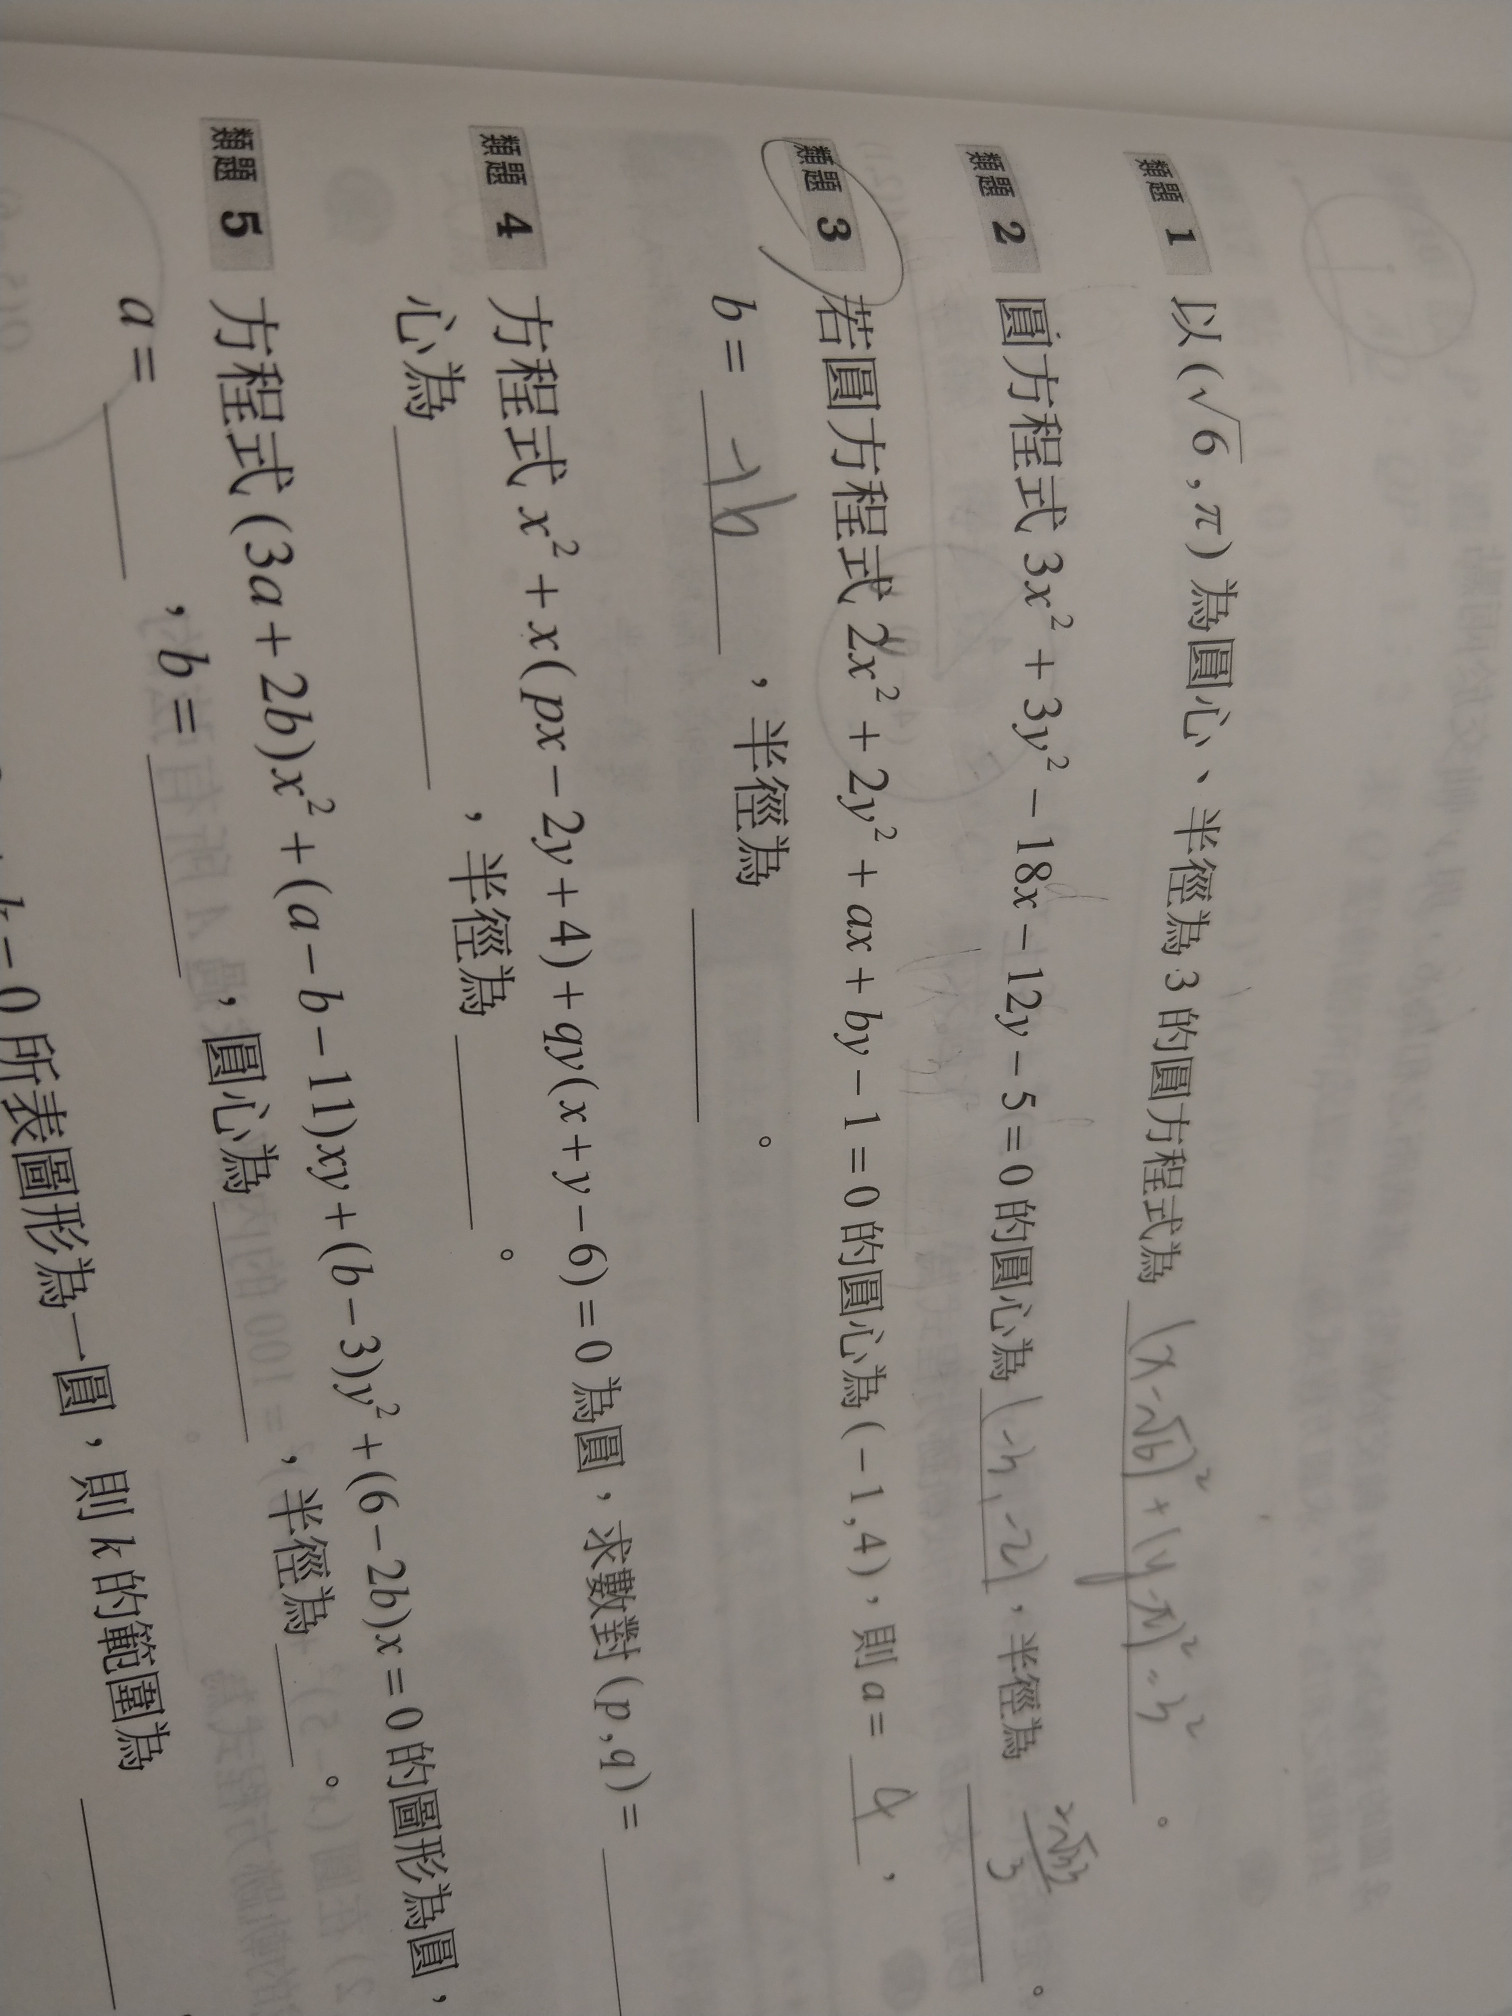 類題 1 以 (√6 , π) 為圓心、半徑為 3 的圓方程式為 (x-√6)² + (y-π)² = 3² 。
類題 2 圓方程式 3x² + 3y² - 18x - 12y - 5 = 0 的圓心為 (-3, -2) ，半徑為 。
類題 3 若圓方程式 2x² + 2y² + ax + by - 1 = 0 的圓心為 (-1 , 4)，則 a = 4 ，
b = -16 ，半徑為 。
類題 4 方程式 x² + x(px - 2y + 4) + qy(x + y - 6) = 0 為圓，求數對 (p , q) =
心為 ，半徑為 。
類題 5 方程式 (3a + 2b)x² + (a - b - 11)xy + (b - 3)y² + (6 - 2b)x = 0 的圖形為圓，
a = ，b = ，圓心為 ，半徑為 。
k = 0 所表圖形為一圓，則 k 的範圍為